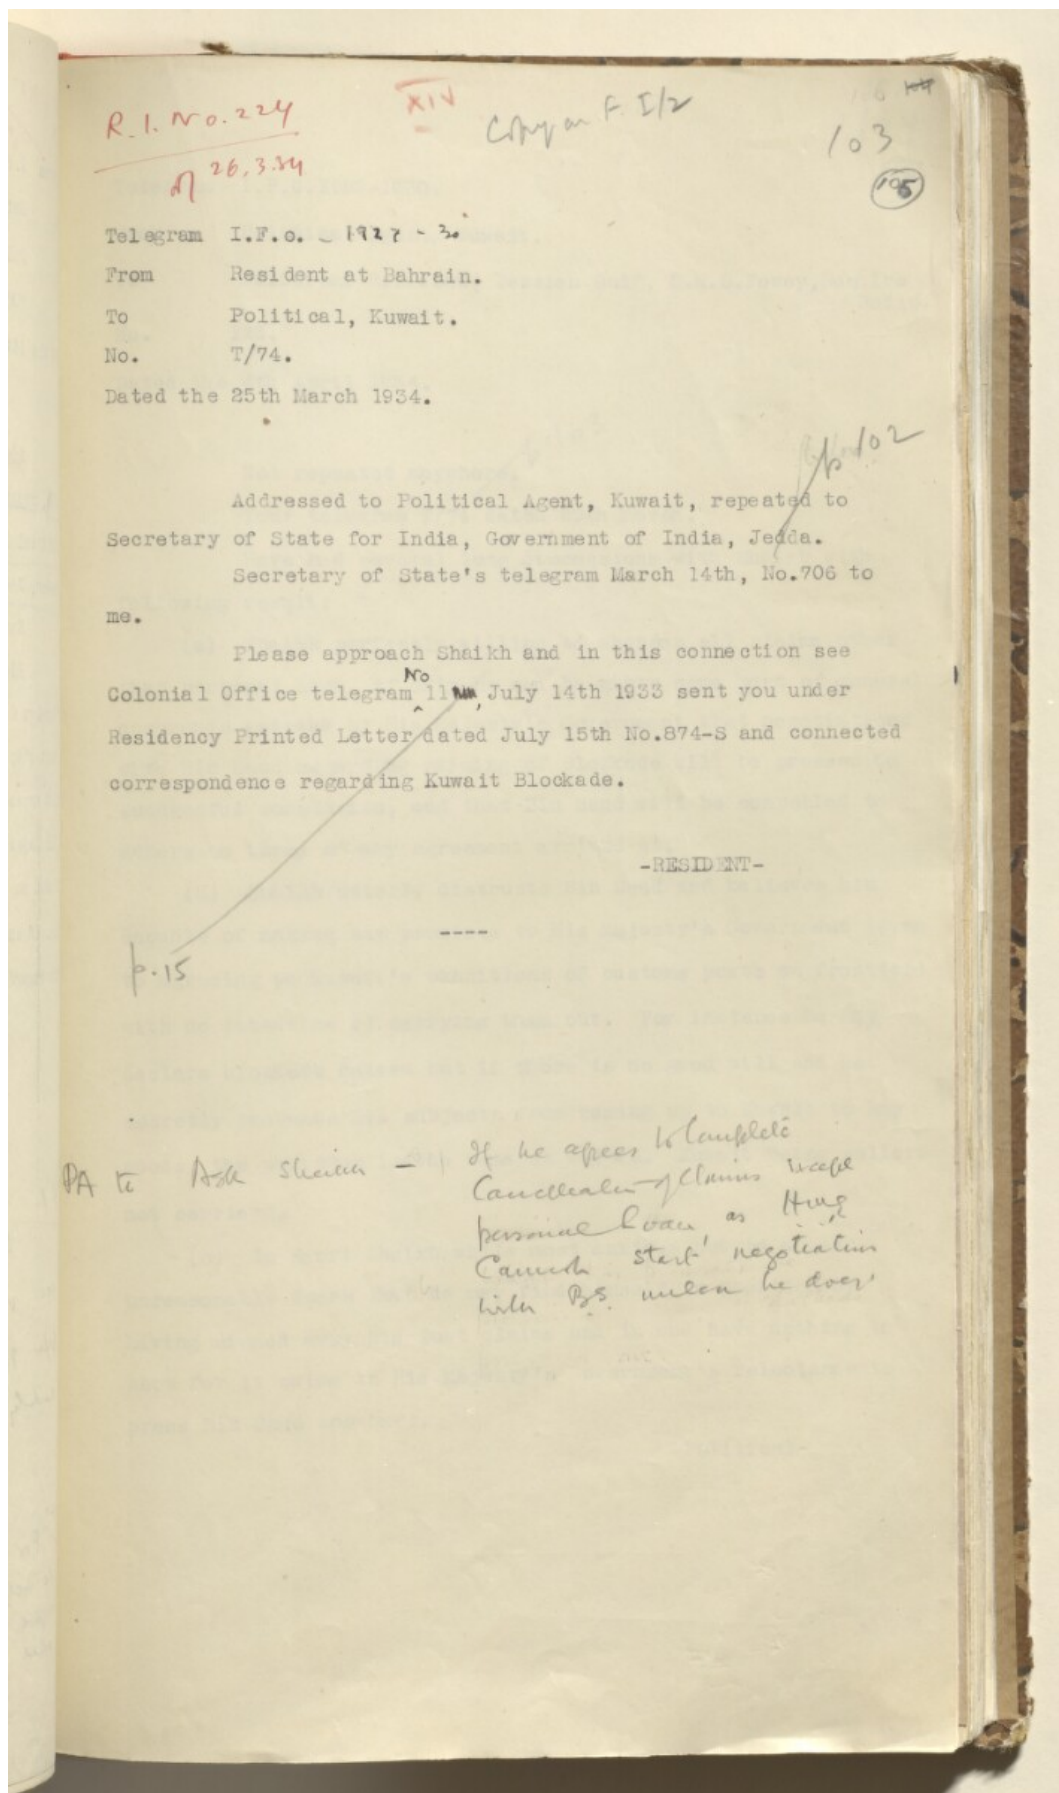 R.I. No. 224
of 26.3.34
XIV
Copy on F. I/2
103
105
Telegram I.F.o. - 1927 - 30
From Resident at Bahrain.
To Political, Kuwait.
No. T/74.
Dated the 25th March 1934.
p 102
Addressed to Political Agent, Kuwait, repeated to
Secretary of State for India, Government of India, Jedda.
Secretary of State's telegram March 14th, No.706 to
me.
Please approach Shaikh and in this connection see
Colonial Office telegram No 11, July 14th 1933 sent you under
Residency Printed Letter dated July 15th No.874-S and connected
correspondence regarding Kuwait Blockade.
-RESIDENT-
----
p.15
PA to Ask Shaikh - If he agrees to complete
Cancellation of Claims except
personal loan, as HMG
Cannot start negotiations
with B.S. unless he does.